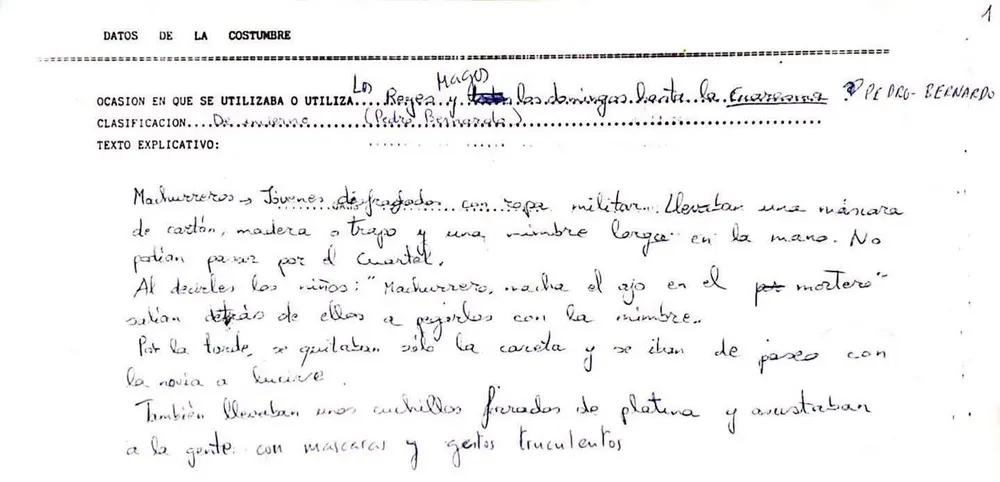 1
DATOS DE LA COSTUMBRE
OCASION EN QUE SE UTILIZABA O UTILIZA.... Los Reyes Magos y los domingos hasta la Cuaresma PEDRO-BERNARDO
CLASIFICACION.... De invierno (Pedro Bernardo)
TEXTO EXPLICATIVO:
Machurreros → Jóvenes disfrazados con ropa militar. Llevaban una máscara
de cartón, madera o trapo y una mimbre larga en la mano. No
podían pasar por el Cuartel.
Al decirles los niños: "Machurrero, macha el ajo en el mortero"
salían detrás de ellos a pegarlos con la mimbre.
Por la tarde, se quitaban sólo la careta y se iban de paseo con
la novia a lucirse.
También llevaban unos cuchillos forrados de platina y asustaban
a la gente con mascaras y gestos truculentos